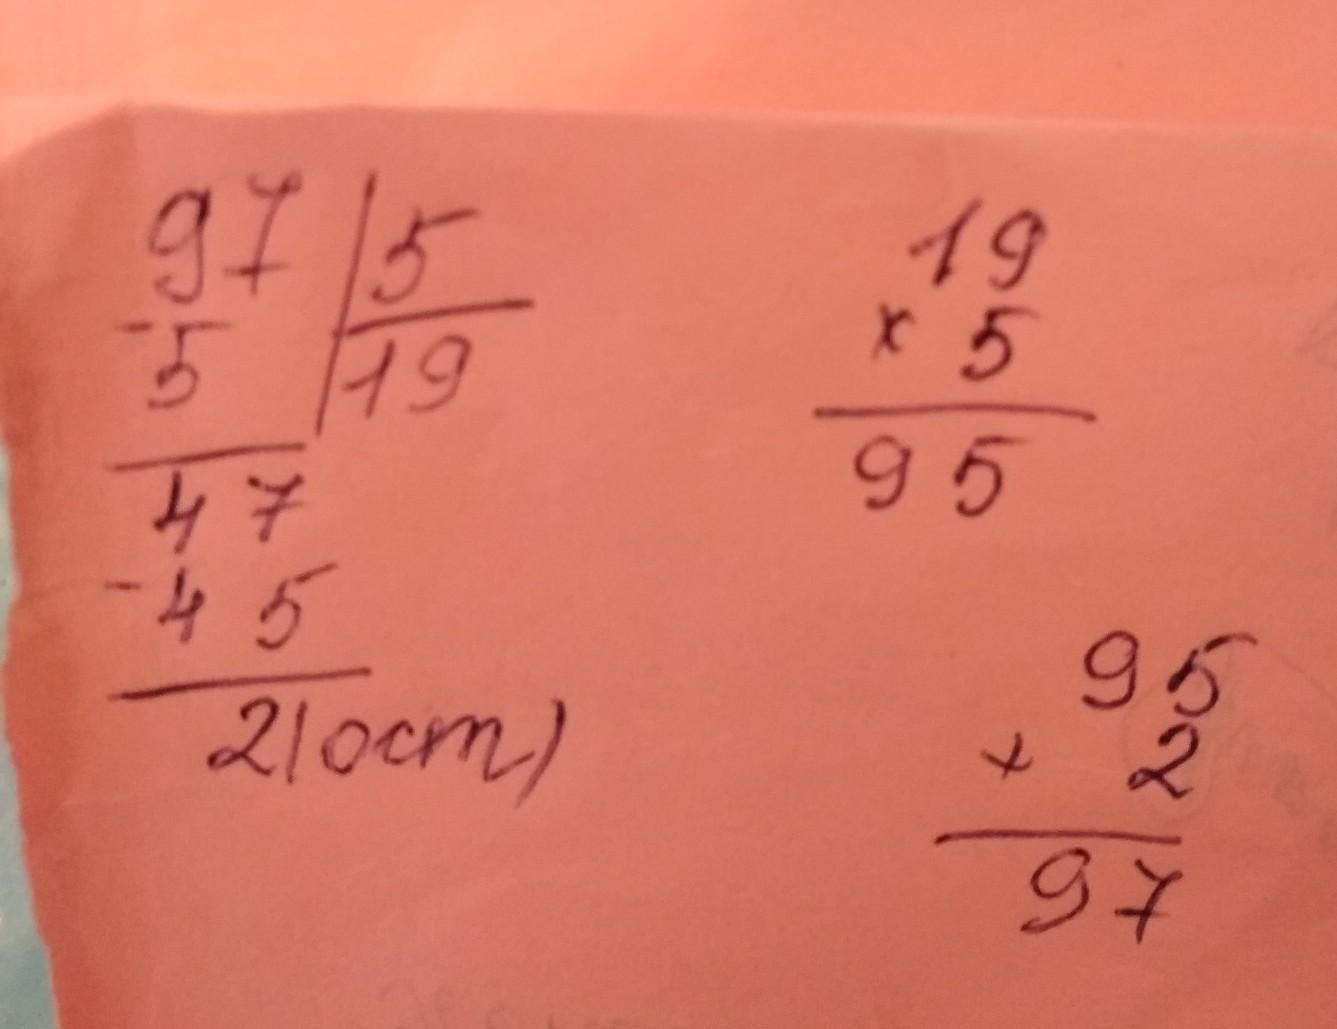 97 | 5
- 5 | 19
47
- 45
2 (ост)
19
× 5
95
95
+ 2
97